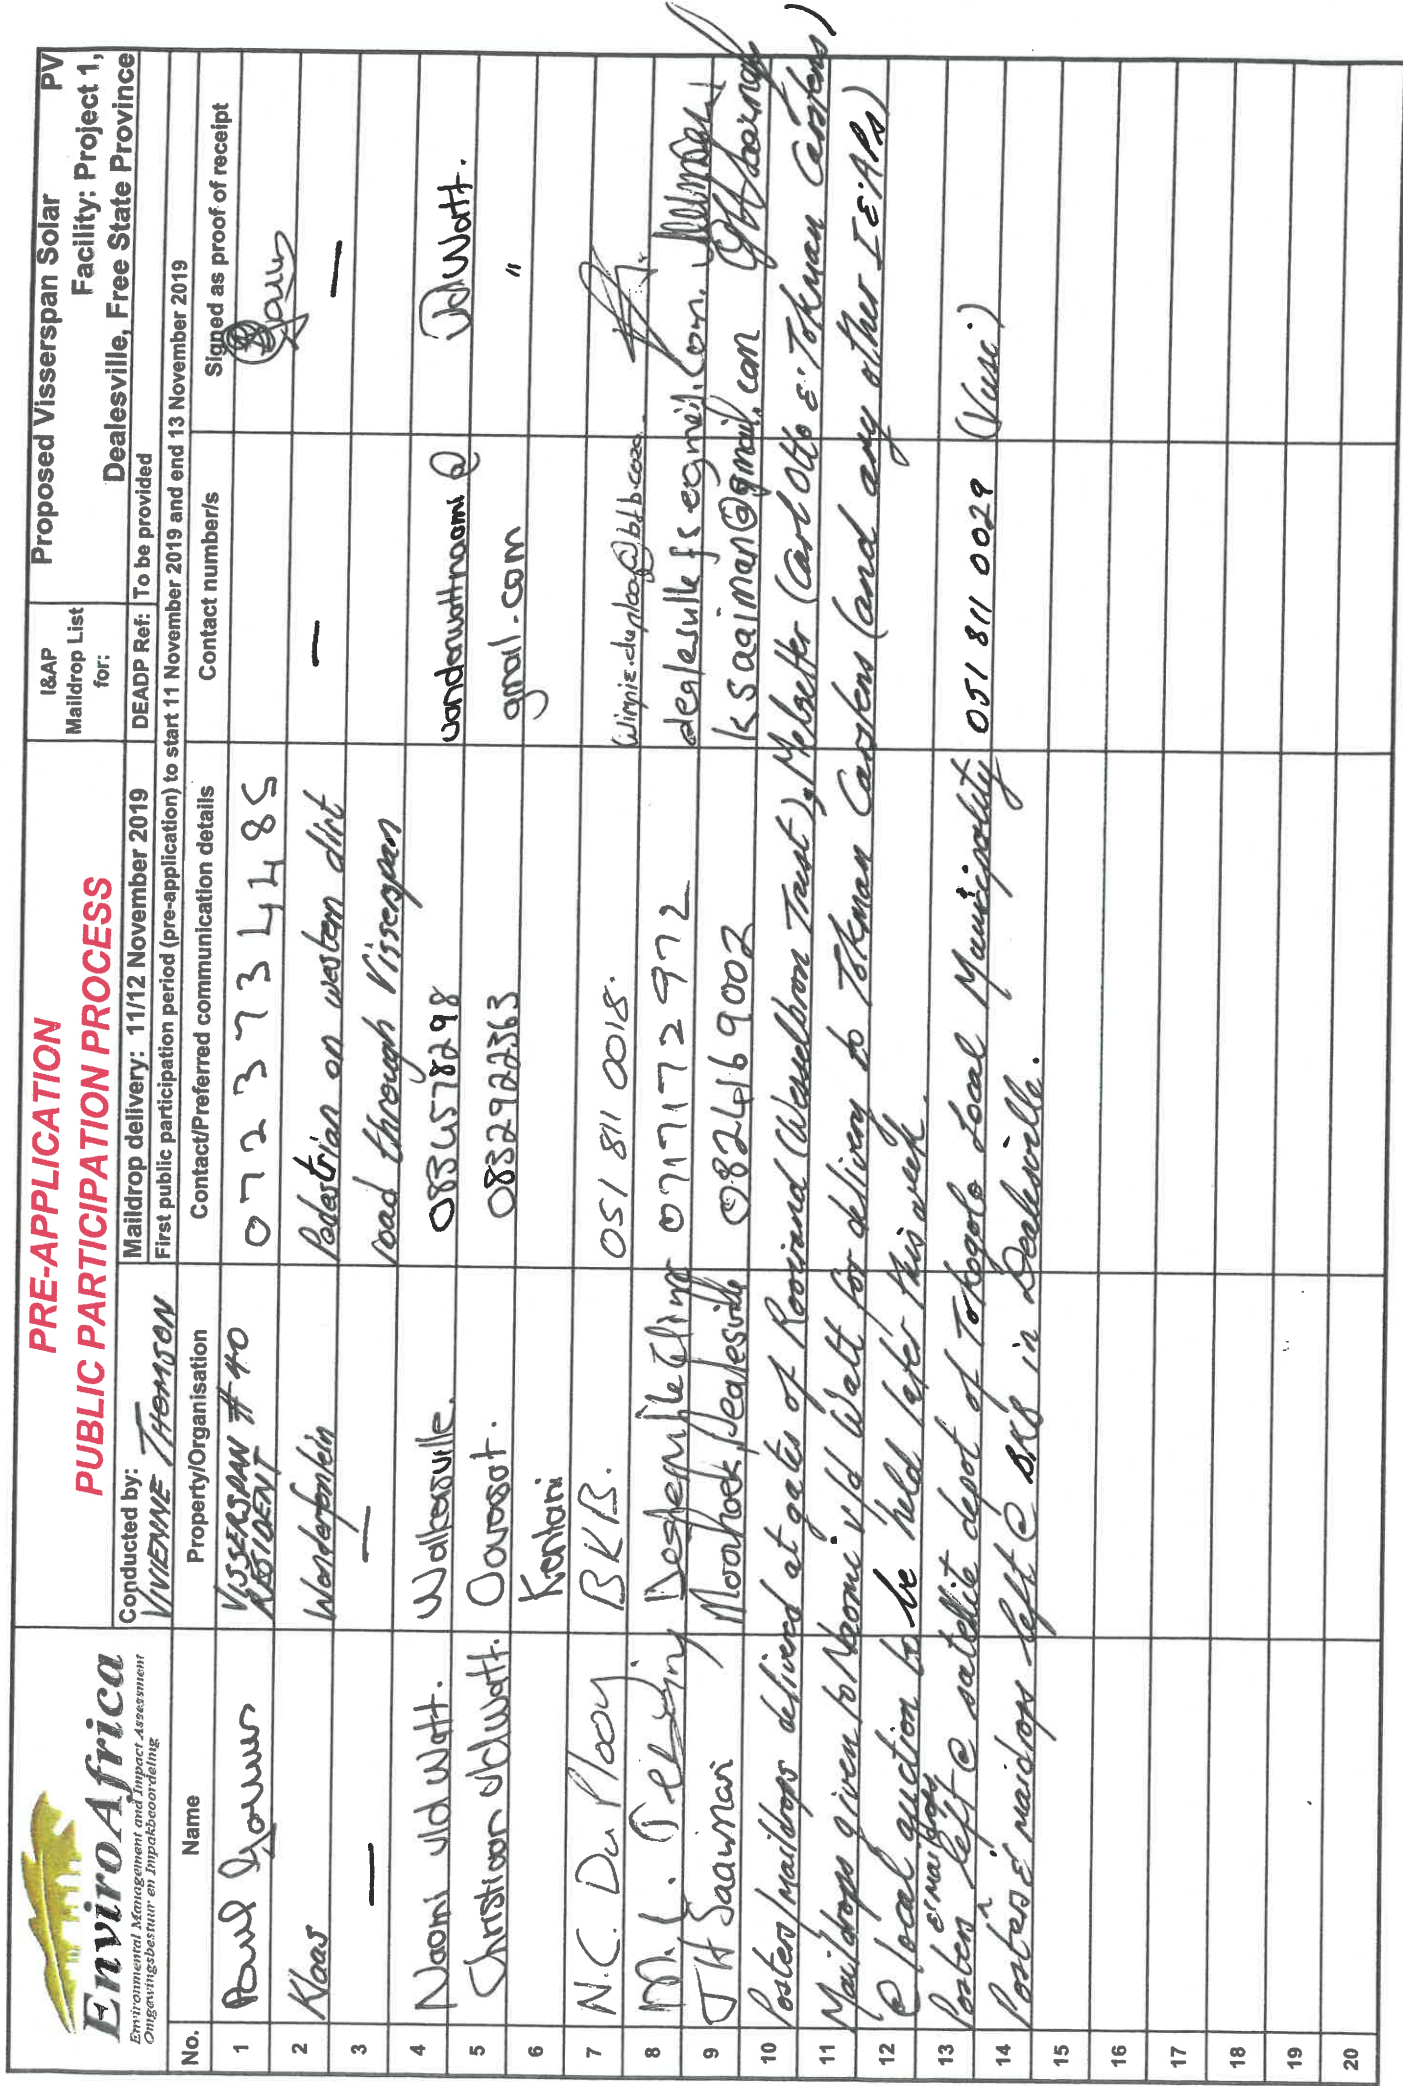 EnviroAfrica
Environmental Management and Impact Assessment
Omgewingsbestuur en Impakbeoordeling
PRE-APPLICATION
PUBLIC PARTICIPATION PROCESS
I&AP
Maildrop List
for:
Proposed Visserspan Solar PV
Facility: Project 1,
Dealesville, Free State Province
Conducted by:
VIVIENNE THOMSON
Maildrop delivery: 11/12 November 2019
DEADP Ref: To be provided
First public participation period (pre-application) to start 11 November 2019 and end 13 November 2019
No. Name Property/Organisation Contact/Preferred communication details Contact number/s Signed as proof of receipt
1 Paul VISSERSPAN #40 RESIDENT 0723734485
2 Klaas Wonderfontein Pedestrian on western dirt — —
3 — — road through Visserspan
4 Naomi vld Watt. Walkersville. 0834578298 vanderwattnaomi@ vd Watt.
5 Christiaan vld Watt. 0832922363 gmail.com "
6 Kentani
7 N.C. Du Plooy BKB. 051 811 0018.
8 0717172972
9 JH Saaiman Moorhoek/Dealesville 0824169002 ksaaiman@gmail.com
10 Posters/maildrops delivered at gates of Rooirand (Wesselbron Trust), Melsetter (Carl Otto & Tokman Carstens)
11 Maildrops given to Naomi v/d Watt for delivery to Tokman Carstens (and any other I&APs)
12 @ local auction to be held later this week.
13 Posters & maildrops left @ satellite depot of Tokogolo Local Municipality 051 811 0029 (Vusi)
14 Posters & maidrops left @ BKB in Dealesville.
15
16
17
18
19
20